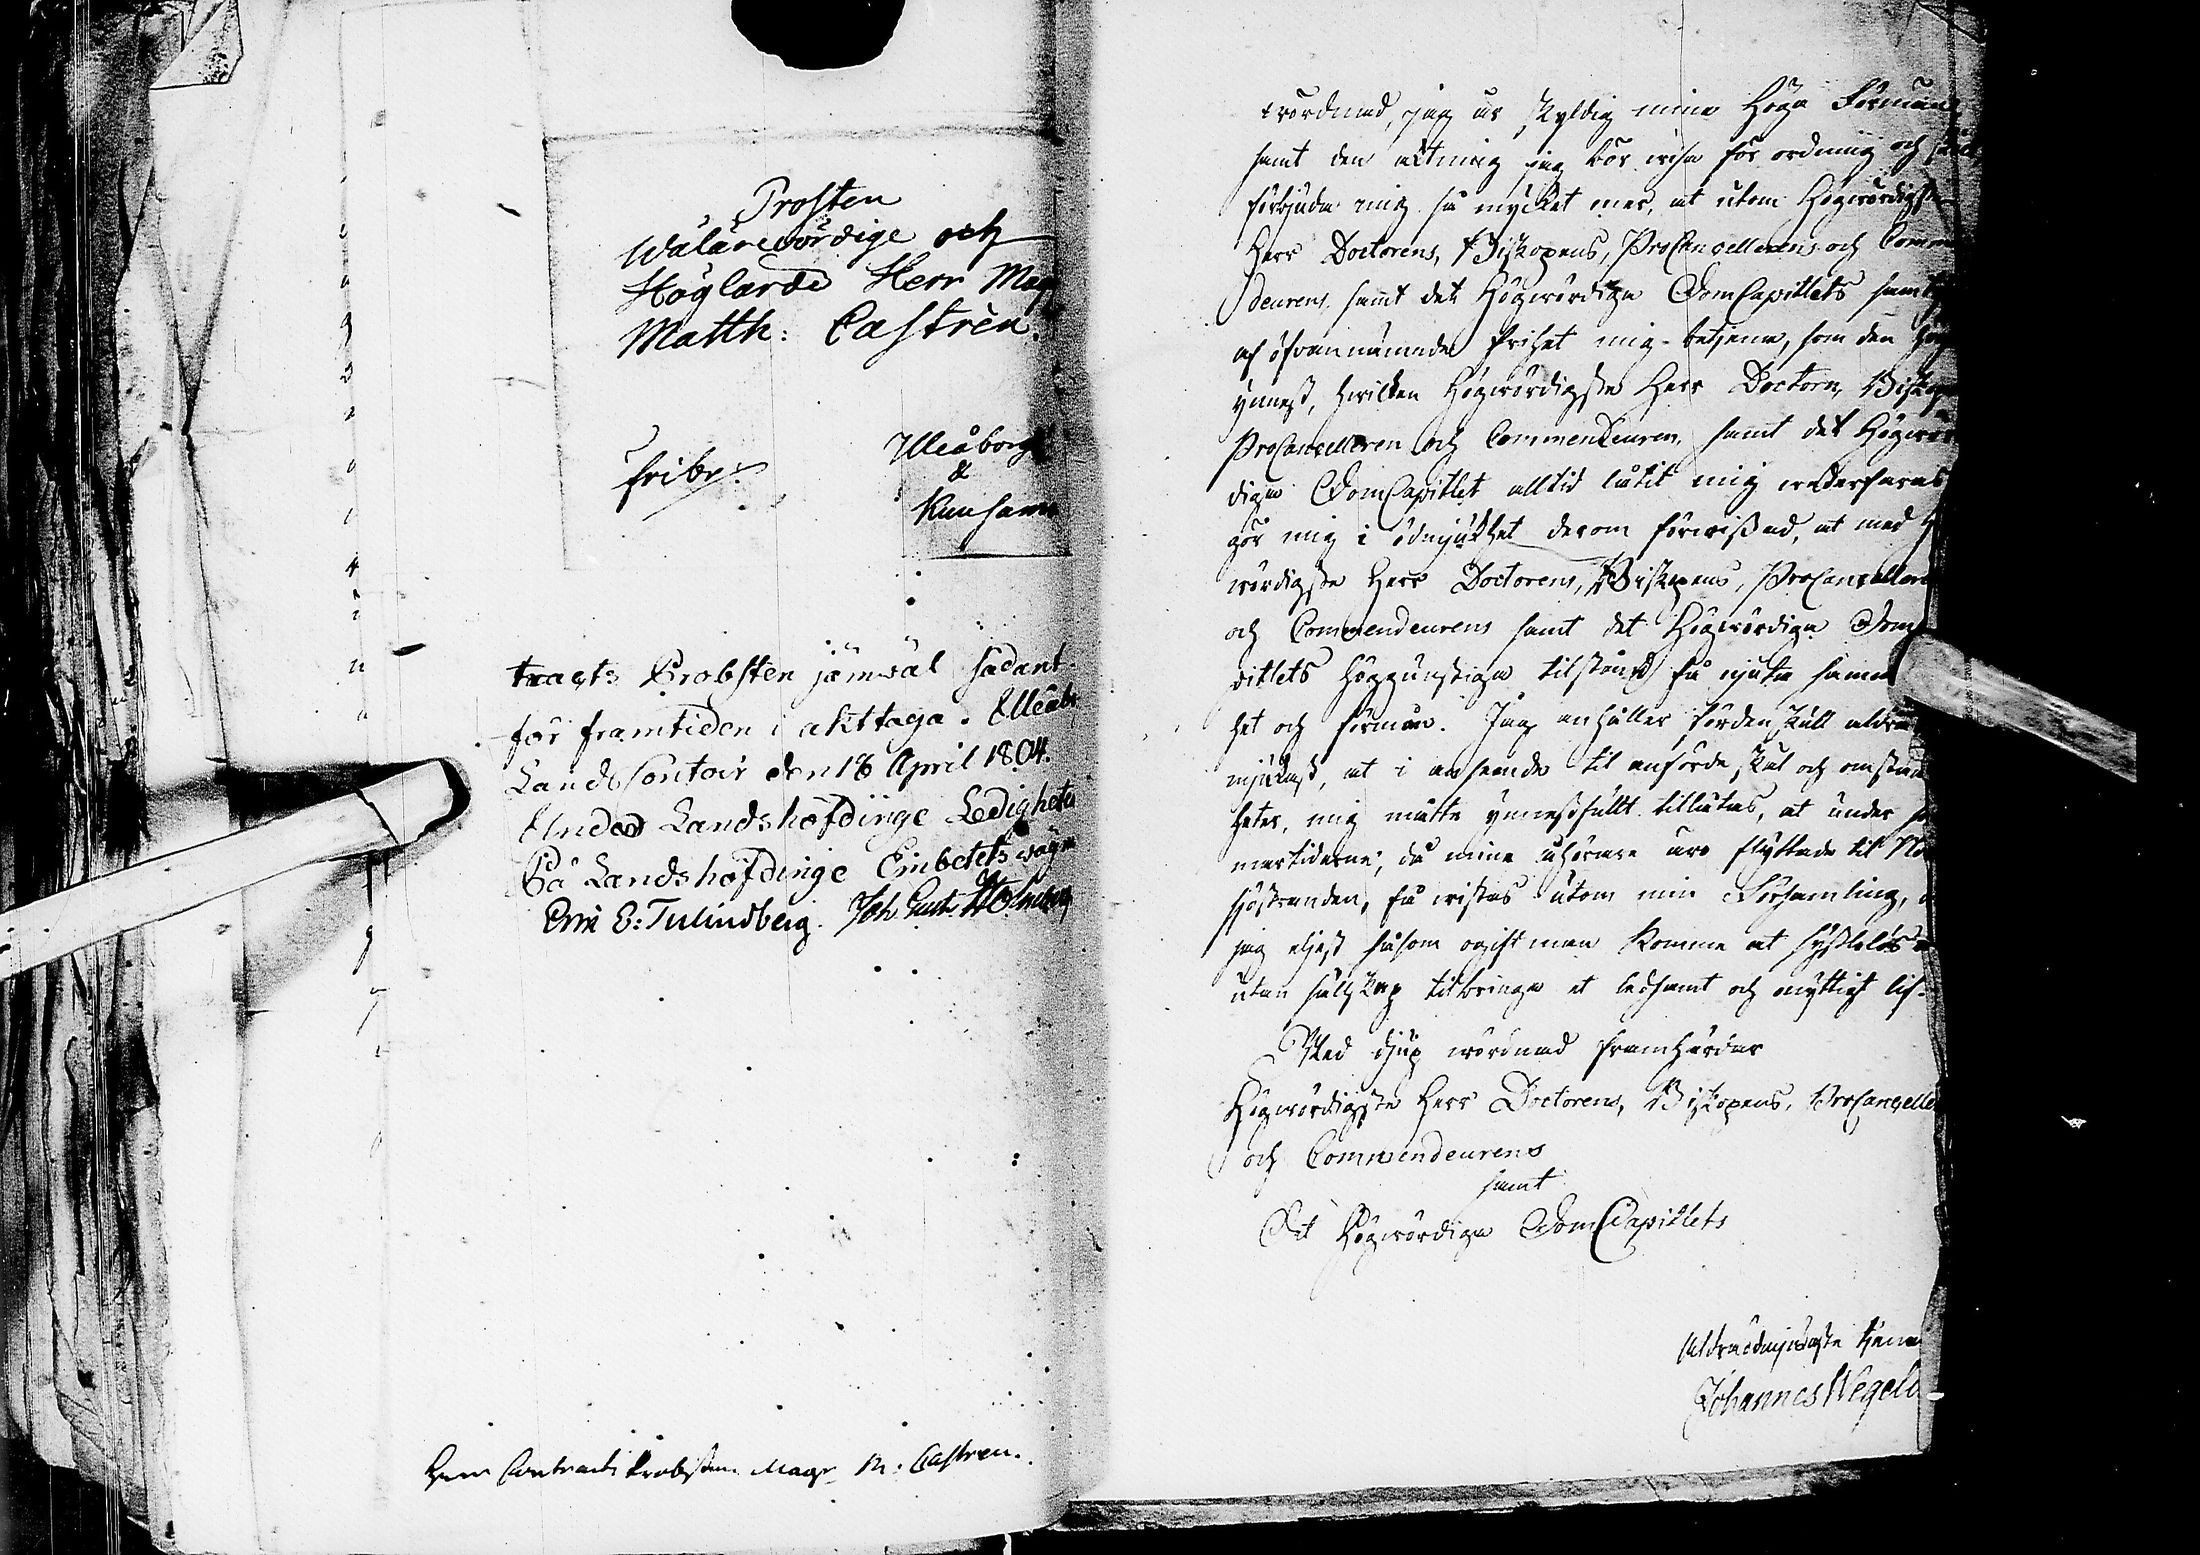 Prosten
Wälärewördige och
Höglärde Herr Mag
Matth: Castrèn.
fribr:
Uleåborg
&
Kuusamo
tracts Probsten jämwäl sådant
för framtiden i akttaga. Uleåb
Lands Contoir den 18 April 1804.
Under Landshöfdinge Ledigheten
På Landshöfdinge Embetets wägn
Eric E: Tulindberg. Joh. Gust.
Herr Contracts Probsten Magr M: Castren.
wördnad, jag är skyldig mina Höga Förmän
samt den aktning jag bör wisa för ordning och
förbjuda mig så mycket mer, at utom Högwördigste
Herr Doctorens, Biskopens, ProCancellerens och Comm
deurens, samt det Högwördiga DomCapitlets samt
af ofvannämnde frihet mig betjena, som den
ynnest, hwilken Högwördigste Herr Doctorn, Biskop
ProCancelleren och Commendeuren, samt det Högwör
diga DomCapitlet alltid låtit mig wederfaras
gör mig i ödmjukhet derom förwissad, at med H
wördigste Herr Doctorens, Biskopens, ProCanceller
och Commendeurens samt det Högwördiga Dom
pitlets höggunstiga tilstånd få njuta samma
het och förmån. Jag anhåller fördenskull aldra
mjukast, at i anseende til anförde skäl och omstän
heter, mig måtte ynnestfullt tillåtas, at under
martiderne, då mine åhörare äro flyttade til
sjöstranden, få wistas utom min Församling,
jag eljest såsom ogift man komme at syslolös
utan sällskap tilbringa et ledsamt och onyttigt lif.
Med djup wördnad framhärdar
Högwördigste Herr Doctorens, Biskopens, ProCancelle
och Commendeurens
samt
Det Högwördiga DomCapitlets
Aldraödmjukaste tjena
Johannes Wegeli